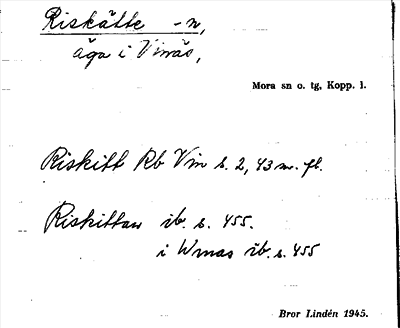 Riskätte -n,
äga i Vinäs,
Mora sn o. tg, Kopp. l.
Riskitt Rb Vin s. 2, 43 m. fl.
Riskittan ib. s. 455.
i Winas ib. s. 455
Bror Lindén 1945.